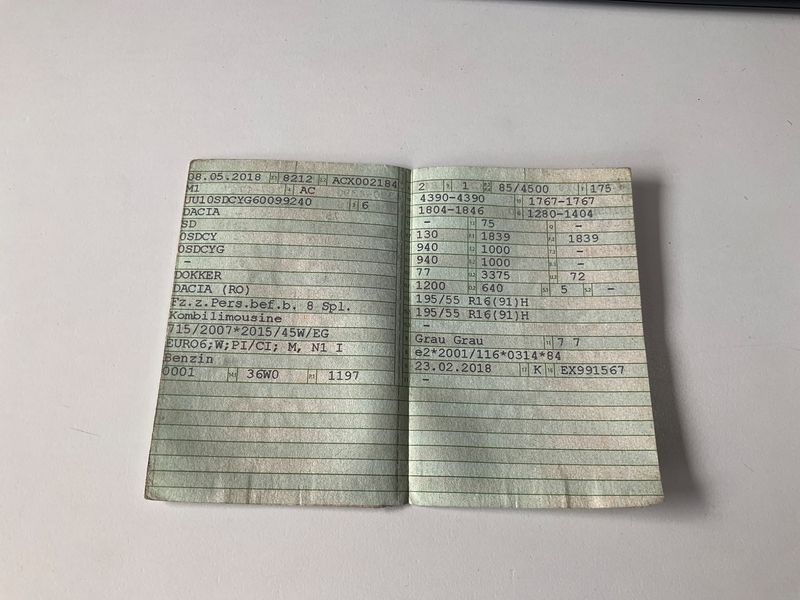 08.05.2018 8212 ACX002184
M1 AC
UU10SDCYG60099240 6
DACIA
SD
0SDCY
0SDCYG
-
DOKKER
DACIA (RO)
Fz.z.Pers.bef.b. 8 Spl.
Kombilimousine
715/2007*2015/45W/EG
EURO6;W;PI/CI; M, N1 I
Benzin
0001 36W0 1197
2 1 85/4500 175
4390-4390 1767-1767
1804-1846 1280-1404
- 75 -
130 1839 1839
940 1000 -
940 1000 -
77 3375 72
1200 640 5 -
195/55 R16(91)H
195/55 R16(91)H
-
Grau Grau 7 7
e2*2001/116*0314*84
23.02.2018 K EX991567
-